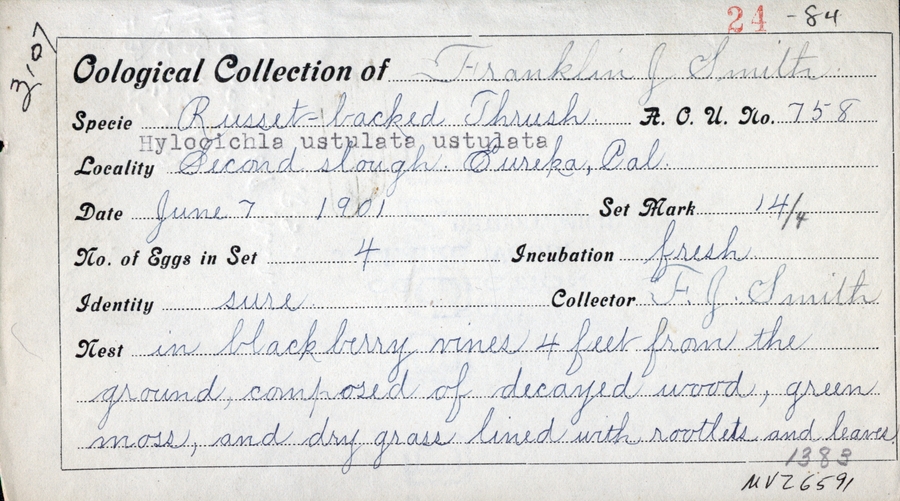 24 - 84
3,07
Oological Collection of Franklin J Smith
Specie Russet-backed Thrush A. O. U. No. 758
Hylocichla ustulata ustulata
Locality Second slough. Eureka, Cal.
Date June 7 1901 Set Mark 14/4
No. of Eggs in Set 4 Incubation fresh
Identity sure Collector F. J. Smith
Nest in blackberry vines 4 feet from the
ground, composed of decayed wood, green
moss, and dry grass lined with rootlets and leaves
1383
MVZ 6591